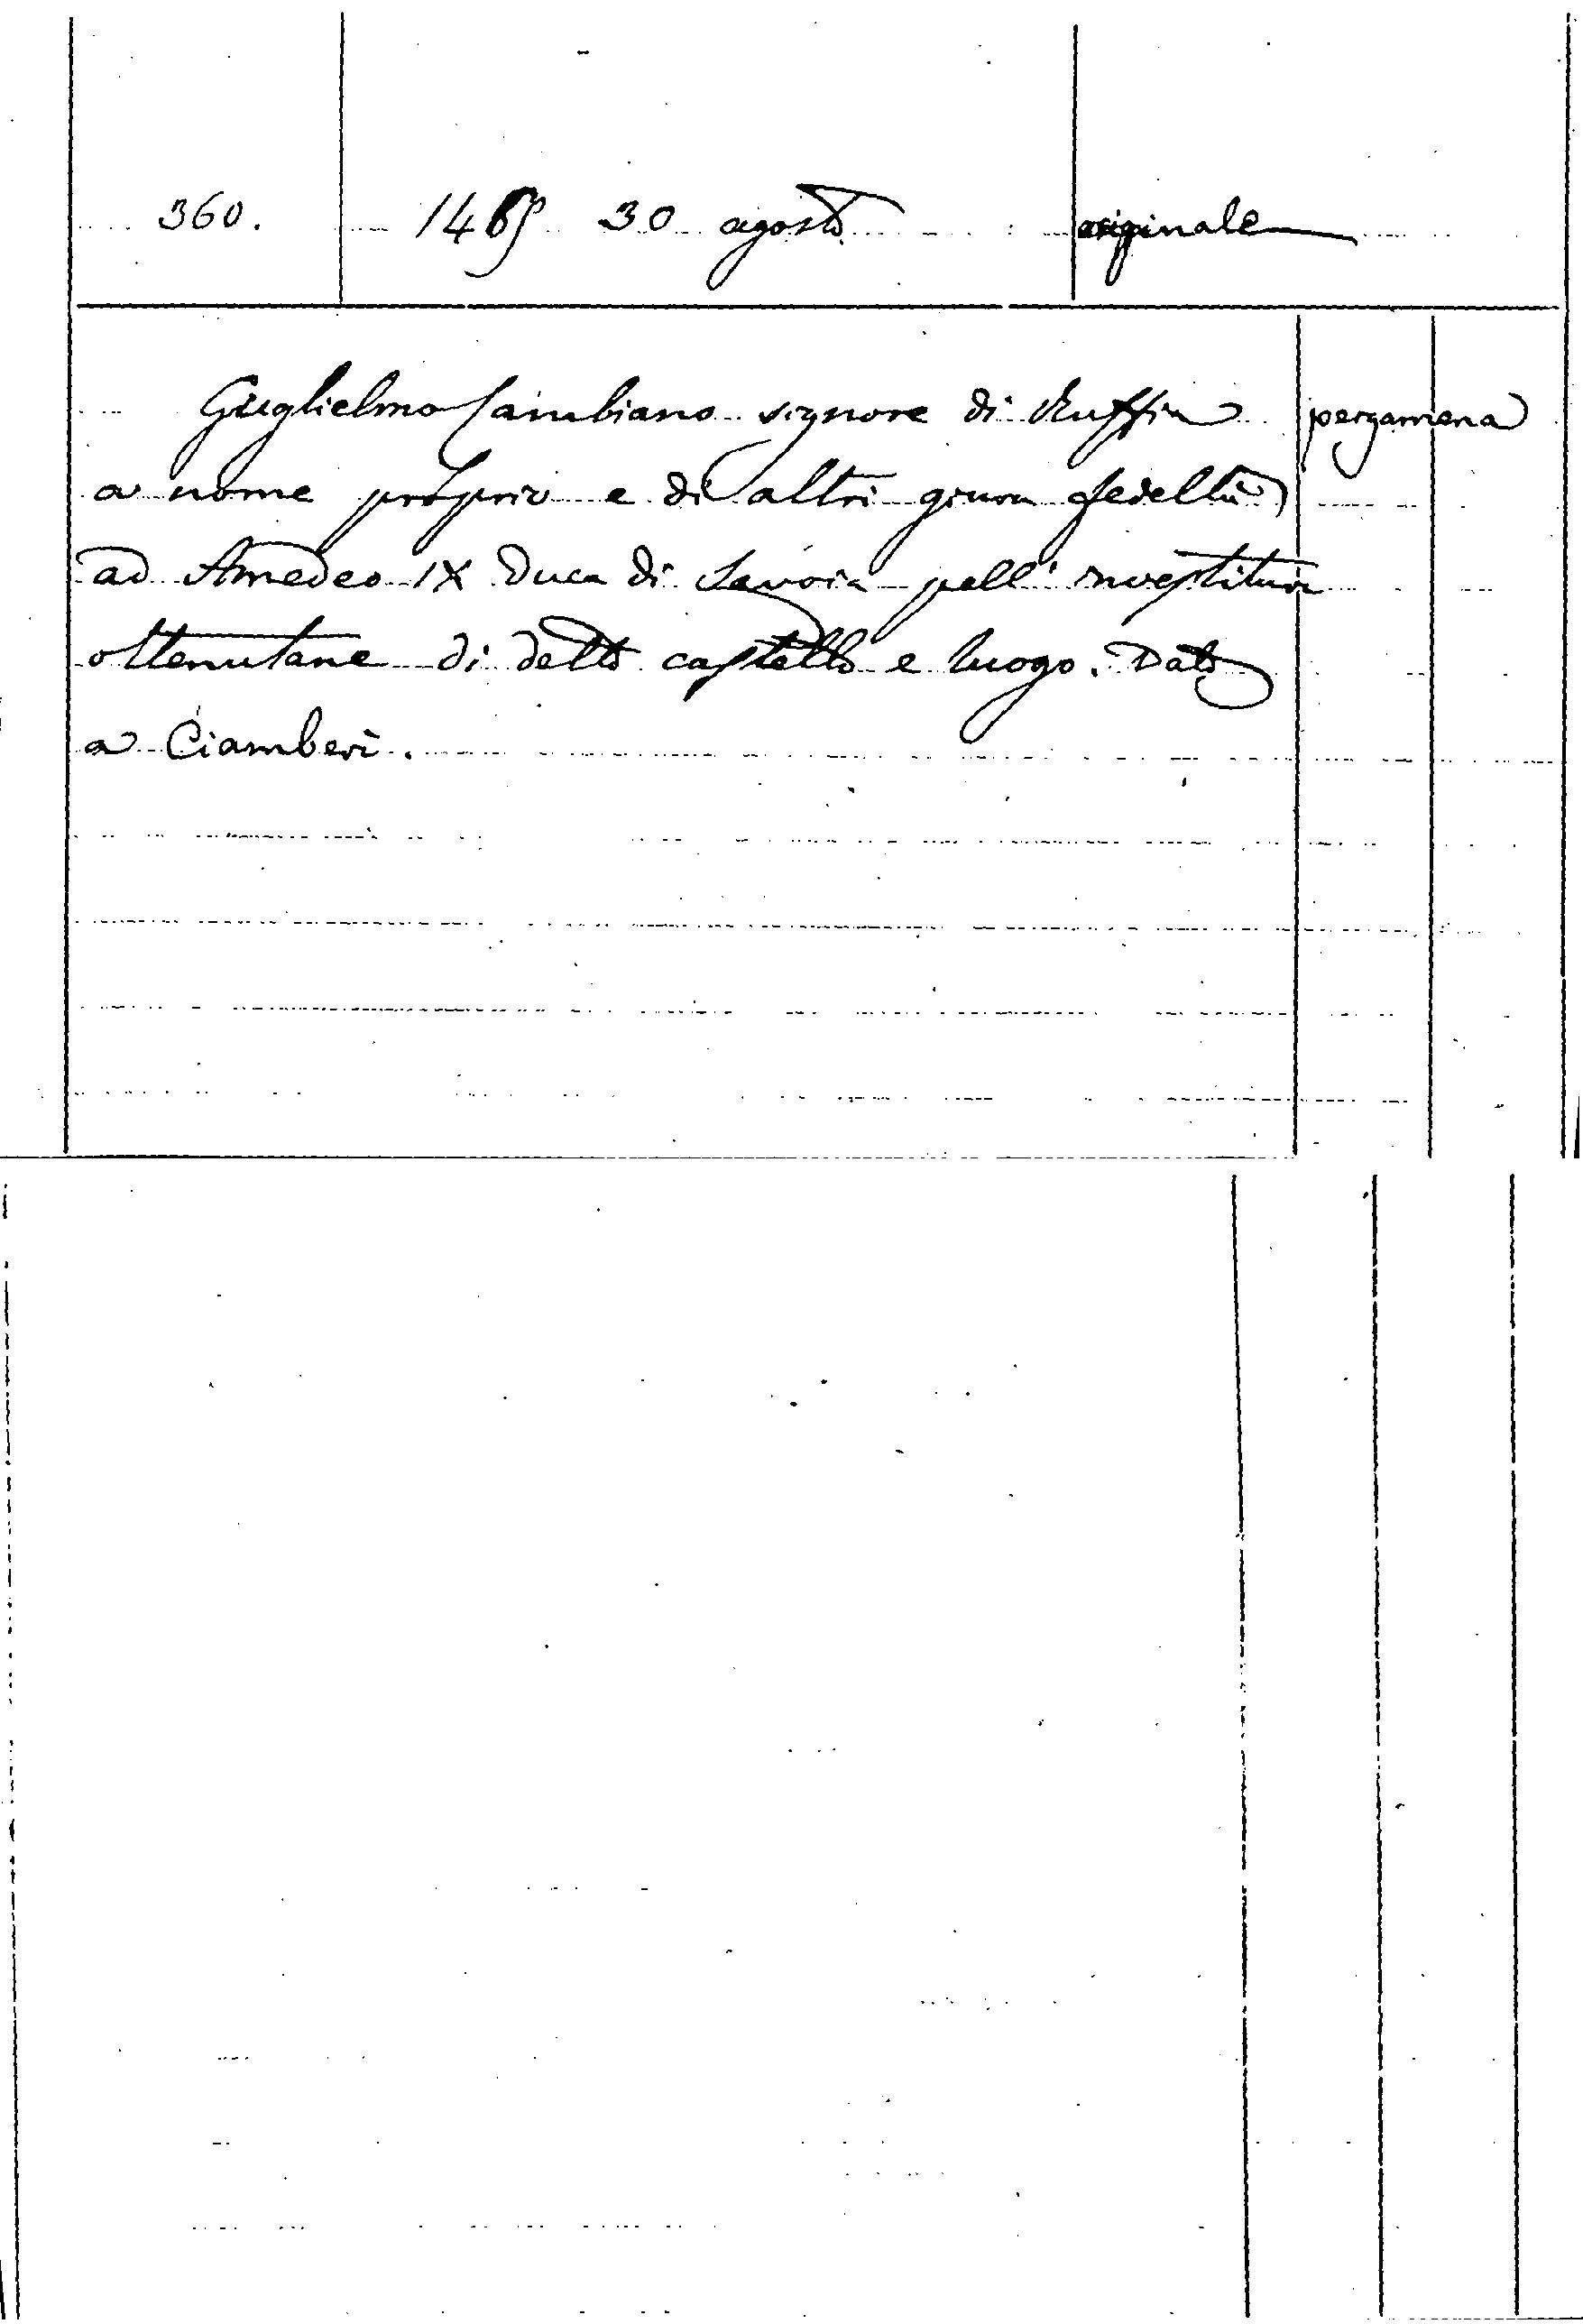 360. 1465 30 agosto originale
Guglielmo Cambiano signore di Ruffia pergamena
a nome proprio e di altri giura fedeltà
ad Amedeo IX duca di Savoia pell' investitura
ottenutane di detto castello e luogo. Dato
a Ciamberì.